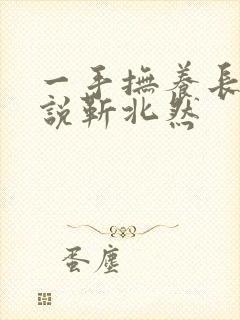 一手撫養長
說靳北然
蛋塵